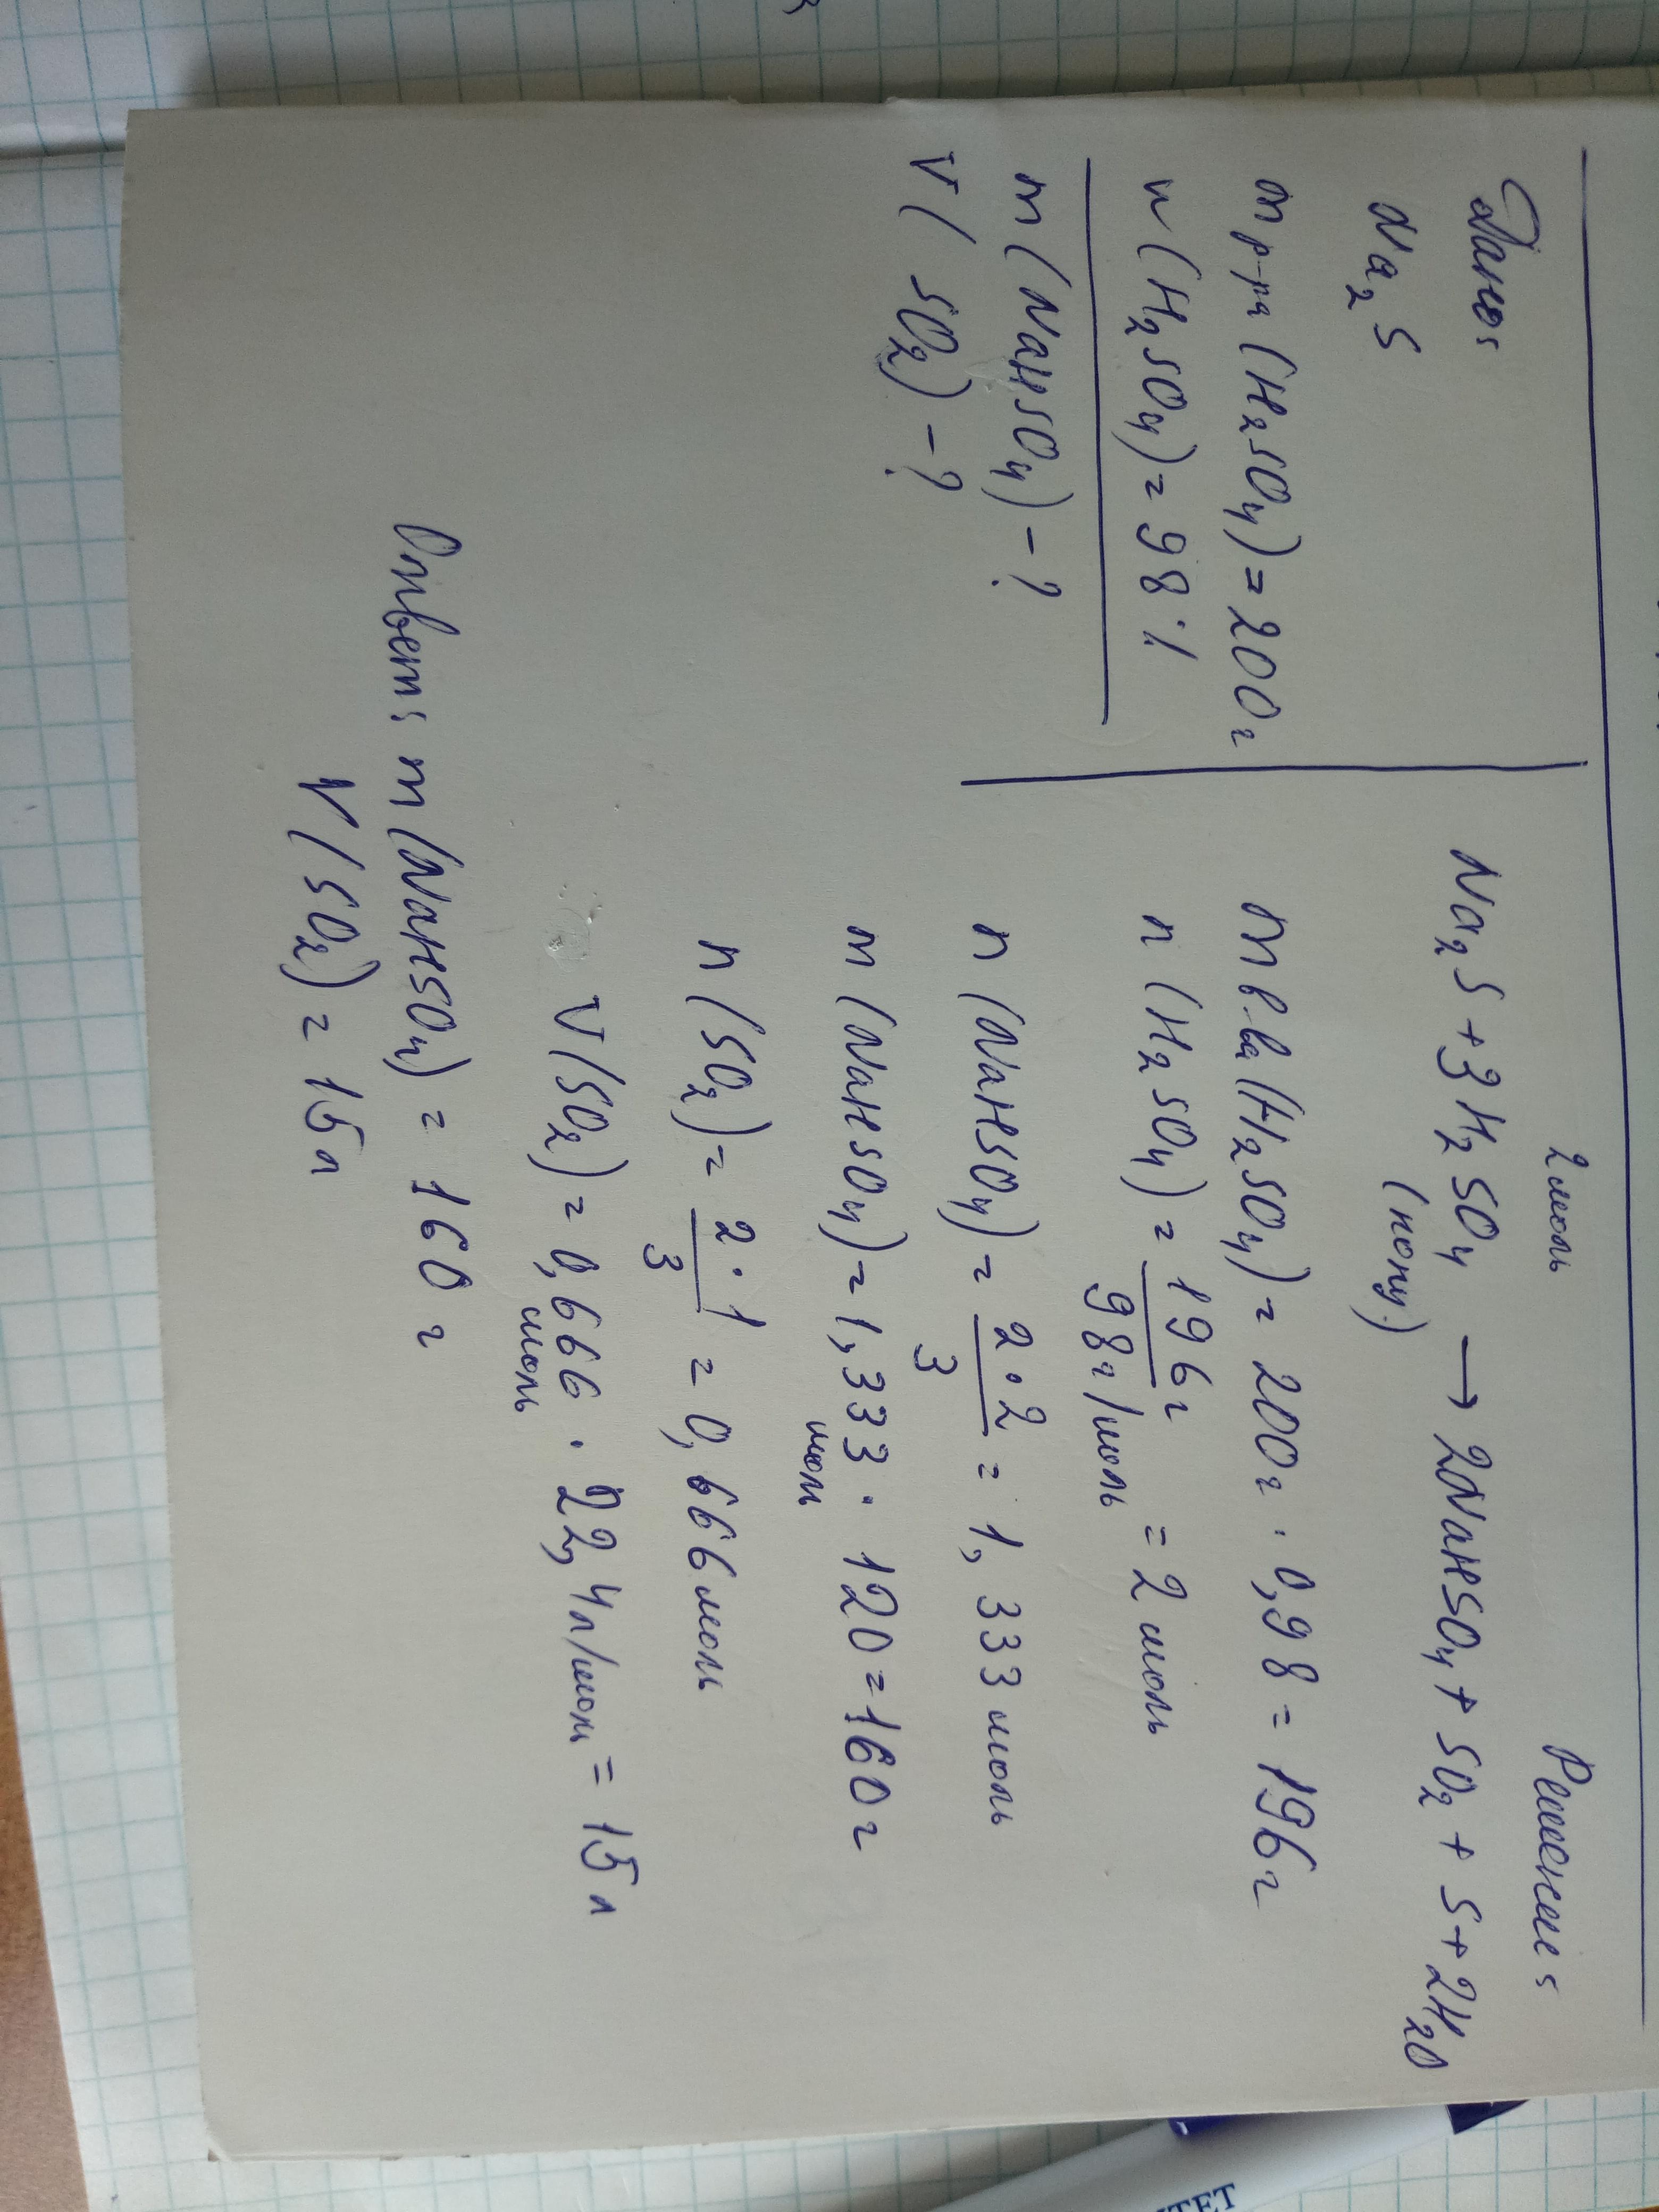 Дано:
Na₂S
m р-ра (H₂SO₄) = 200 г
w (H₂SO₄) = 98 %
m (NaHSO₄) - ?
V (SO₂) - ?
Решение:
2 моль
Na₂S + 3H₂SO₄ → 2NaHSO₄ + SO₂ + S + 2H₂O
(конц.)
m в-ва (H₂SO₄) = 200 г · 0,98 = 196 г
n (H₂SO₄) = 196 г / 98 г/моль = 2 моль
n (NaHSO₄) = 2 · 2 / 3 = 1,333 моль
m (NaHSO₄) = 1,333 моль · 120 = 160 г
n (SO₂) = 2 · 1 / 3 = 0,666 моль
V (SO₂) = 0,666 моль · 22,4 л/моль = 15 л
Ответ: m (NaHSO₄) = 160 г
V (SO₂) = 15 л